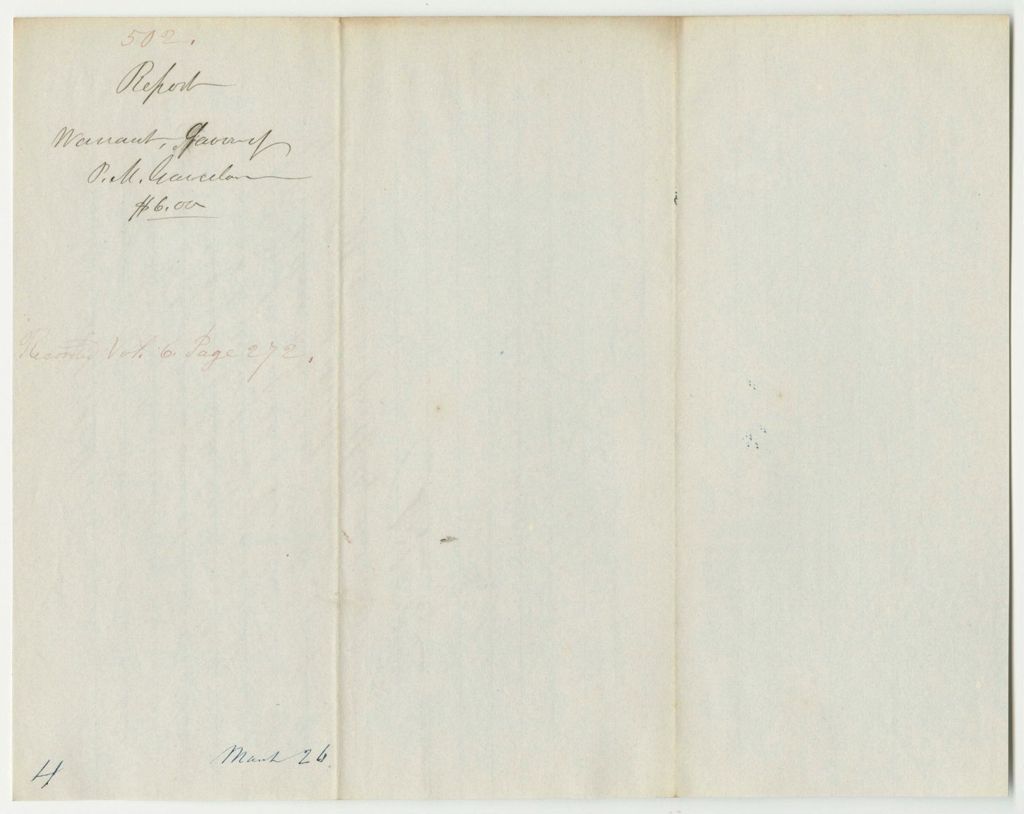 502.
Report
Warrant, favor of
P. M. Garcelon
$6.00
Recorded Vol. 6. Page 272.
March 26.
4